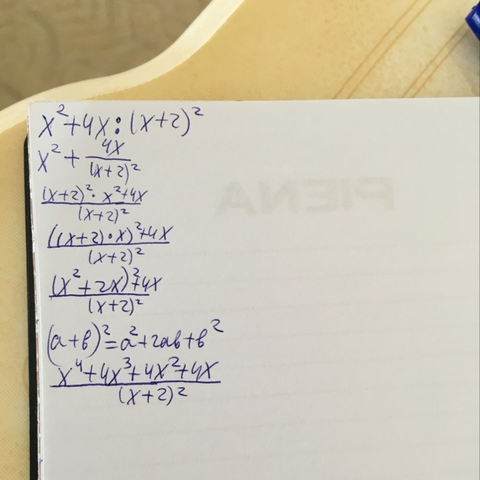 x²+4x:(x+2)²
x²+4x/(x+2)²
(x+2)²·x²+4x/(x+2)²
((x+2)·x)²+4x/(x+2)²
(x²+2x)²+4x/(x+2)²
(a+b)²=a²+2ab+b²
x⁴+4x³+4x²+4x/(x+2)²
PIENA